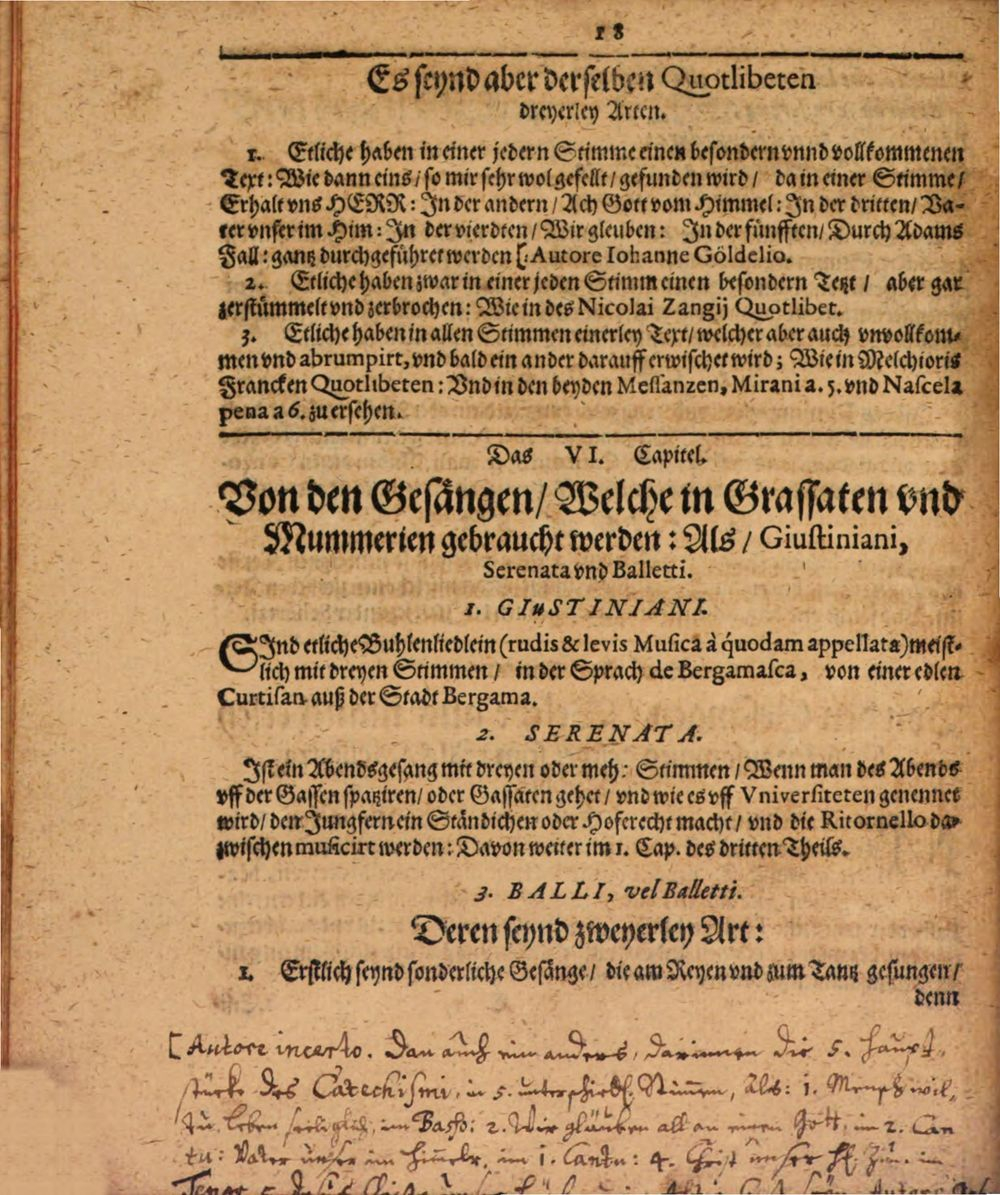 18
Es seynd aber derselben Quotlibeten
dreyerley Arten.
1. Etliche haben in einer jedern Stimme einen besondern vnnd vollkommenen
Text: Wie dann eins/ so mir sehr wol gefellt/ gefunden wird/ da in einer Stimme/
Erhalt vns HERR: In der andern/ Ach Gott vom Himmel: In der dritten/ Va-
ter vnser im Him: In der vierdten/ Wir gleuben: In der fünfften/ Durch Adams
Fall: gantz durchgeführet werden [: Autore Iohanne Göldelio.
2. Etliche haben zwar in einer jeden Stimm einen besondern Text/ aber gar
zerstümmelt vnd zerbrochen: Wie in des Nicolai Zangij Quotlibet.
3. Etliche haben in allen Stimmen einerley Text/ welcher aber auch vnvollkom-
men vnd abrumpirt, vnd bald ein ander darauff erwischet wird; Wie in Melchioris
Francken Quotlibeten: Vnd in den beyden Messanzen, Mirani a. 5. vnd Nascela
pena a 6. zu ersehen.
Das VI. Capitel.
Von den Gesängen/ Welche in Grassaten vnd
Mummerien gebraucht werden: Als/ Giustiniani,
Serenata vnd Balletti.
1. GIuSTINIANI.
SInd etliche Buhlenliedlein (rudis & levis Musica à quodam appellata) meist-
lich mit dreyen Stimmen/ in der Sprach de Bergamasca, von einer edlen
Curtisan auß der Stadt Bergama.
2. SERENATA.
Ist ein Abendsgesang mit dreyen oder meh: Stimmen/ Wenn man des Abends
vff der Gassen spatziren/ oder Gassaten gehet/ vnd wie es vff Vniversiteten genennet
wird/ den Jungfern ein Ständichen oder Hoferecht macht/ vnd die Ritornello da-
zwischen musicirt werden: Davon weiter im 1. Cap. des dritten Theils.
3. BALLI, vel Balletti.
Deren seynd zweyerley Art:
1. Erstlich seynd sonderliche Gesänge/ die am Reyen vnd zum Tantz gesungen/
denn
[Autore incerto. Dan auch ein anders, darinnen die 5. Haupt-
stücke des Catechismi, in 5. unterschiedl. Stimmen, Als: 1. Mensch wil-
tu leben seeliglich, im Basso: 2. Wir gläuben all an einen Gott, im 2. Can
tu: Vater unser im Himelr. im 1. Cantu: 4. Christ unser H. Zum. im
Tenor